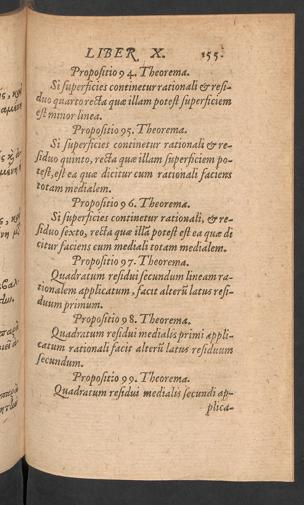 LIBER X. 155.
Propositio 94. Theorema.
Si superficies continetur rationali & resi-
duo quarto recta quæ illam potest superficiem
est minor linea.
Propositio 95. Theorema.
Si superficies continetur rationali & re-
siduo quinto, recta quæ illam superficiem po-
test, est ea quæ dicitur cum rationali faciens
totam medialem.
Propositio 96. Theorema.
Si superficies continetur rationali, & re-
siduo sexto, recta quæ illã potest est ea quæ di
citur faciens cum mediali totam medialem.
Propositio 97. Theorema.
Quadratum residui secundum lineam ra-
tionalem applicatum, facit alterũ latus resi-
duum primum.
Propositio 98. Theorema.
Quadratum residui medialis primi appli-
catum rationali facit alterũ latus residuum
secundum.
Propositio 99. Theorema.
Quadratum residui medialis secundi ap-
plica-